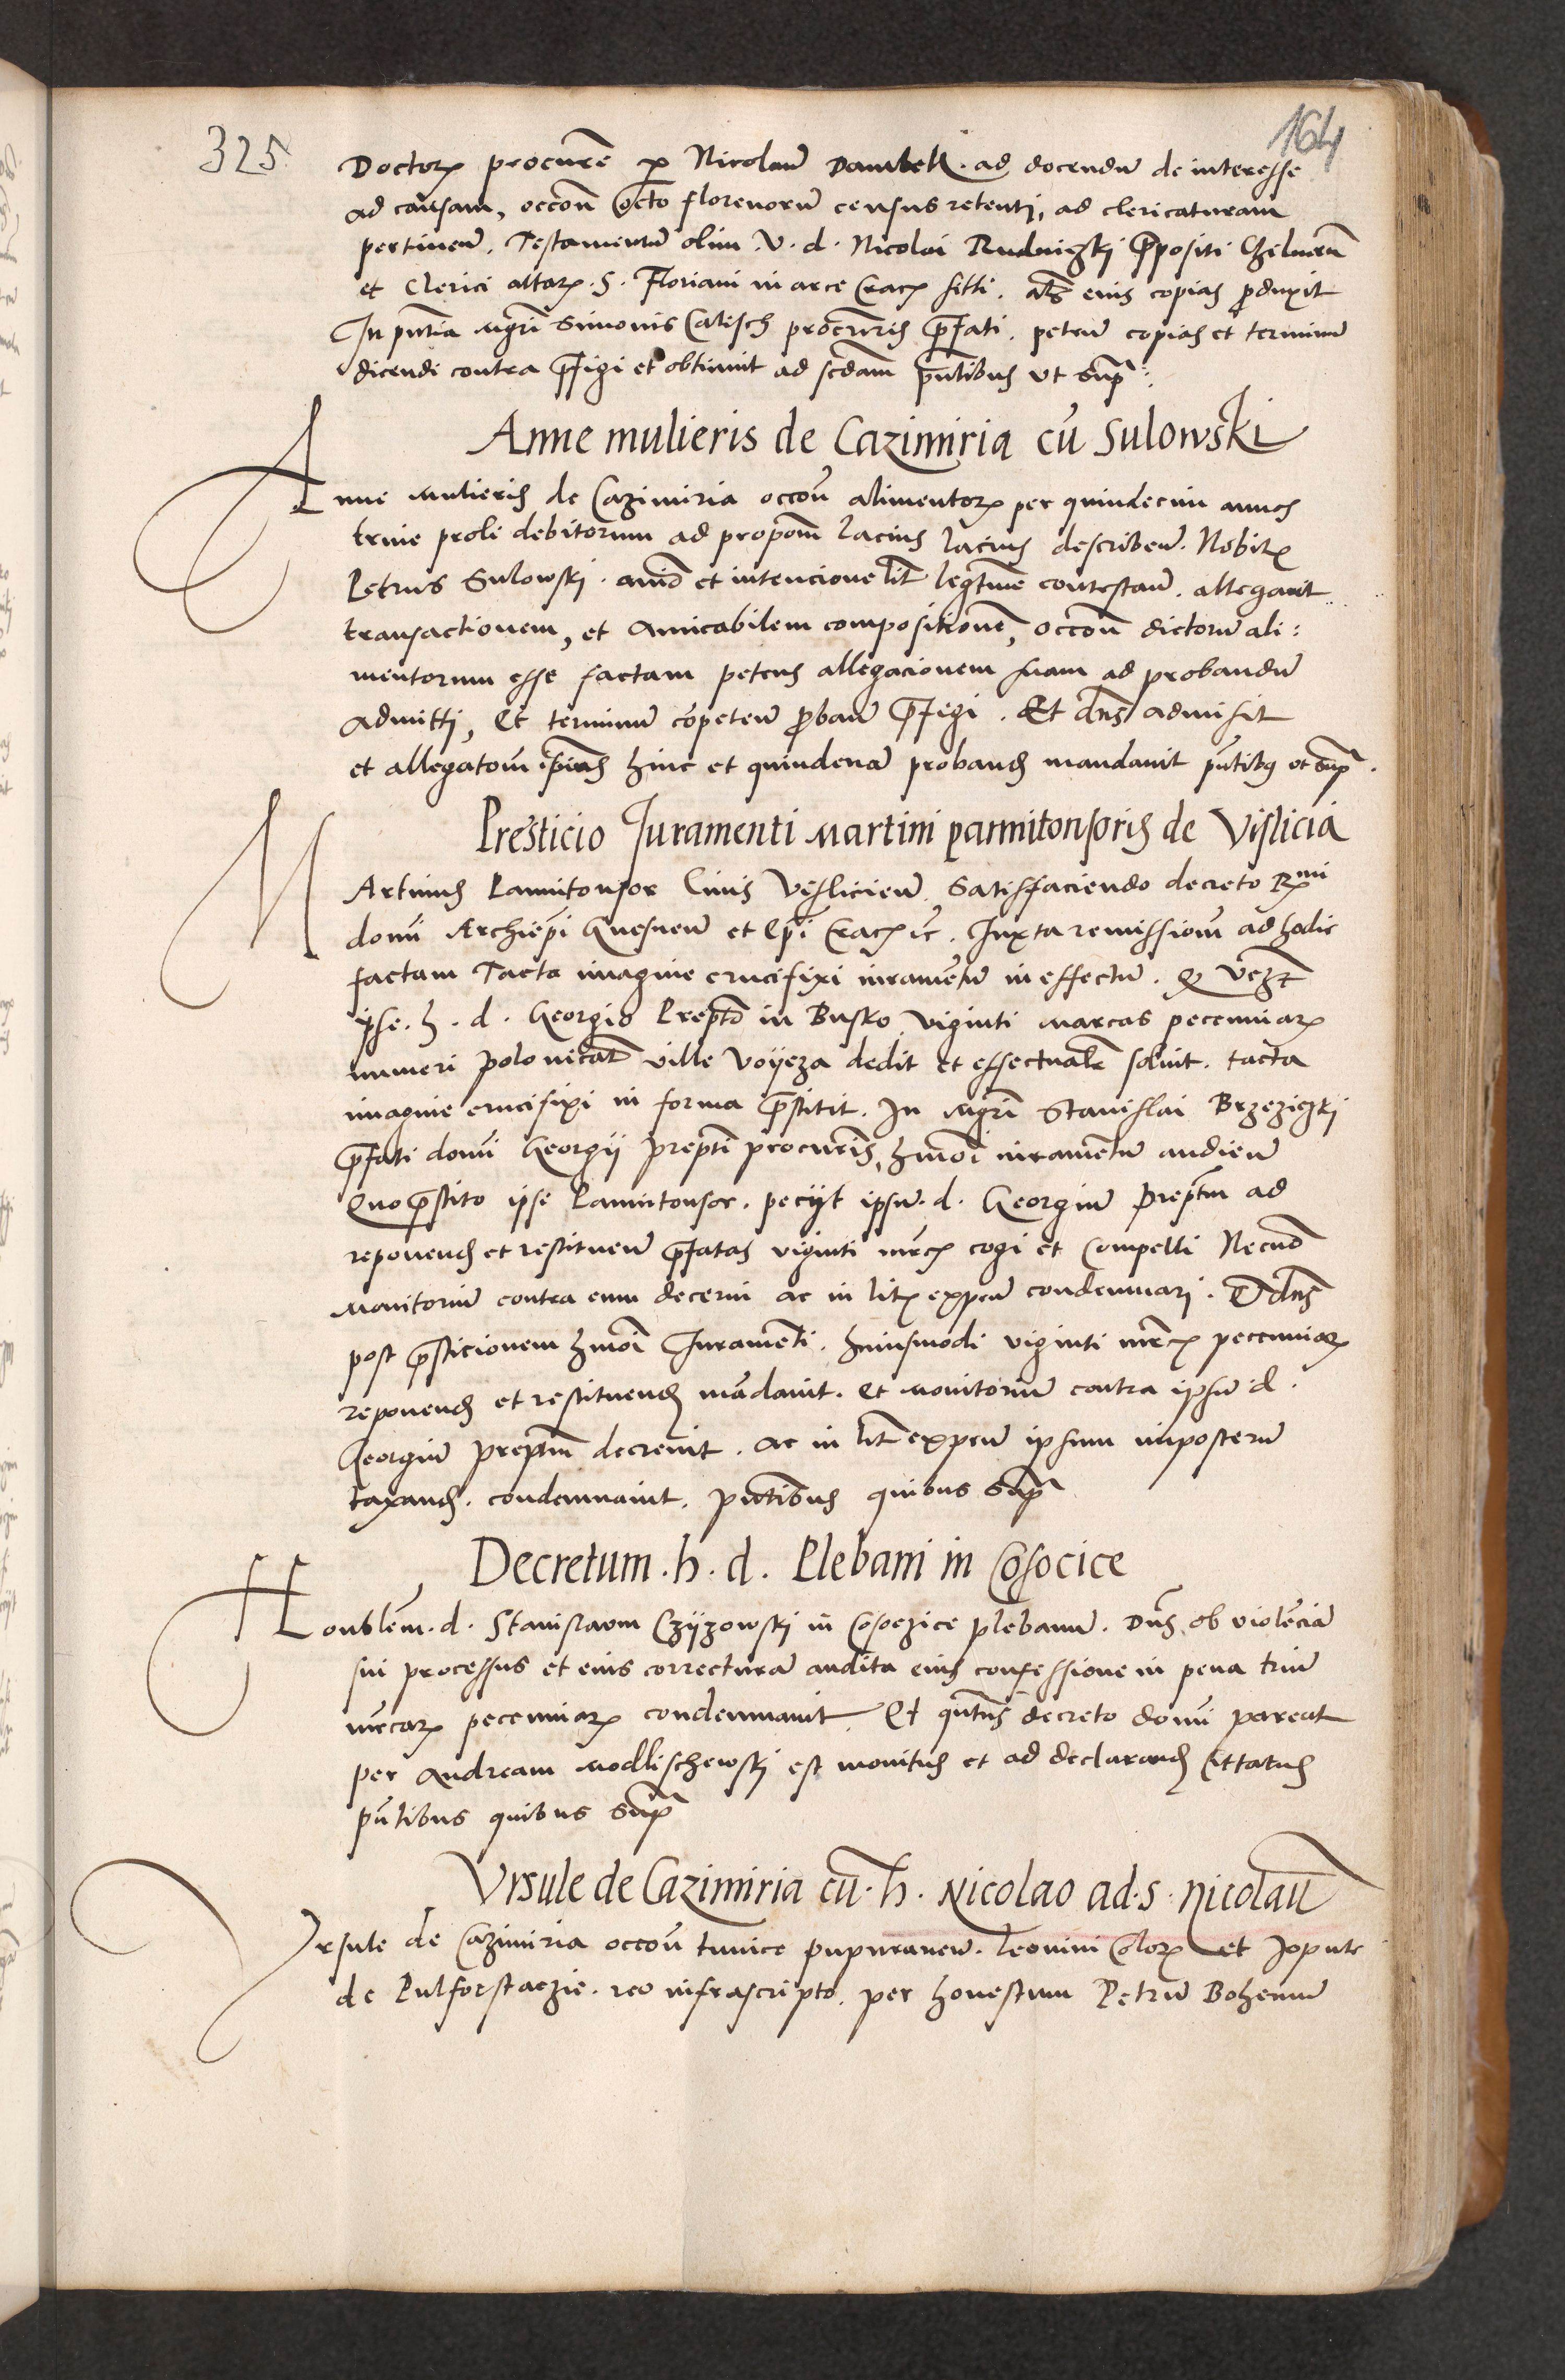 325
164
Doctorꝝ procurē ꝑ Nicolaū Dambek. ad docendū de interesse
ad causam, occoñ Octo florenorū census retenti, ad clericaturam
pertineñ. Testamentū olim. V. d. Nicolai Rudnizki p̄positi Chelmeñ
et Clerici altarꝝ. S. Floriani in arce Cracꝝ sitti. al̄s eius copias ꝓduxit
In pn̄tia mgr̄i Simonis Calisch procur̄is p̄fati. peteñ copias et terminū
dicendi contra p̄figi et obtinuit ad sc̄dam pn̄tibus vt supͣ
Anne mulieris de Cazimiria cū Sulowski
Anne mulieris de Cazimiria occoñ alimentorꝝ per quindecim annos
trine proli debitorum ad propoēm lacius lacius describeñ. Nobilꝭ
Petrus Sulowski. aīo et intencione lit̄ legt̄ime contestañ. allegauit
transactionem, et Amicabilem compositionē, occoñ dictorū ali:
mentorum esse factam petens allegacionem suam ad probandū
admitti, Et terminū cōpeteñ ꝓbañ p̄fegi. Et dn̄s admisit
et allegatoēm ip̄ius hinc et quindenā probandꝭ mandauit pn̄tibꝰ vt supͣ.
Presticio Juramenti Martini pannitonsoris de Vislicia
MArtinus Pannitonsor Ciuis Vislicieñ. Satisfaciendo decreto Rᵐⁱ
domī Archiep̄i Gnesneñ et Ep̄i Cracꝝ ec̄. Juxta remissionē ad hodie
factam Tacta imagine crucifixi iuramentū in effectū. Q
ipse. h. d. Georgio Prept̄o in Busko viginti marcas pecuniarꝝ
numeri polonicat̄ ville Voyeza dedit et effectualē soluit. tacta
imagine crucifixi in forma p̄stitit. In mgr̄i Stanislai Brzeziczki
p̄fati domī Georgij Prept̄i procur̄is, hm̄oi iuramentū audieñ
Quo p̄stito ipse Pannitonsor. pecijt ipsū. d. Georgiū prept̄m ad
reponendꝭ et restitueñ p̄fatas viginti mr̄cꝭ cogi et Compelli Necnō
Monitoriū contra eum decerni ac in litꝭ expeñ condemnari. Et dn̄s
post p̄sticionem hm̄oi Juramenti. huiusmodi viginti mr̄cꝭ pecuniarꝝ
reponendꝭ et restituendꝭ mādauit. Et monitoriū contra ipsū d.
Georgiū prept̄m decreuit. ac in lit̄ expeñ ipsum imposterū
taxandꝭ. condemnauit. pn̄tibus quibus supͣ
Decretum. h. d. Plebani in Cosocice
Honbl̄em. d. Stanislaum Czyzowski in Cosoczice plebanū. Dn̄s ob violēciā
sui processus et eius correcturā audita eius confessione in pena triū
mr̄carꝝ pecuniarꝝ condemnauit. Et qn̄tūs decreto domī pareat
per Andream Modlischewski est monitus et ad declarandꝭ Cittatus
pn̄tibus quibus supͣ
Vrsule de Cazimiria cū. h. Nicolao ad. s. nicolaū
Vrsule de Cazimiria occoñ tunice pupuraneū. leonini Colorꝭ et Jopule
de Pulforstaczie. reo infrascripto. per honestum Petrū Bohemū